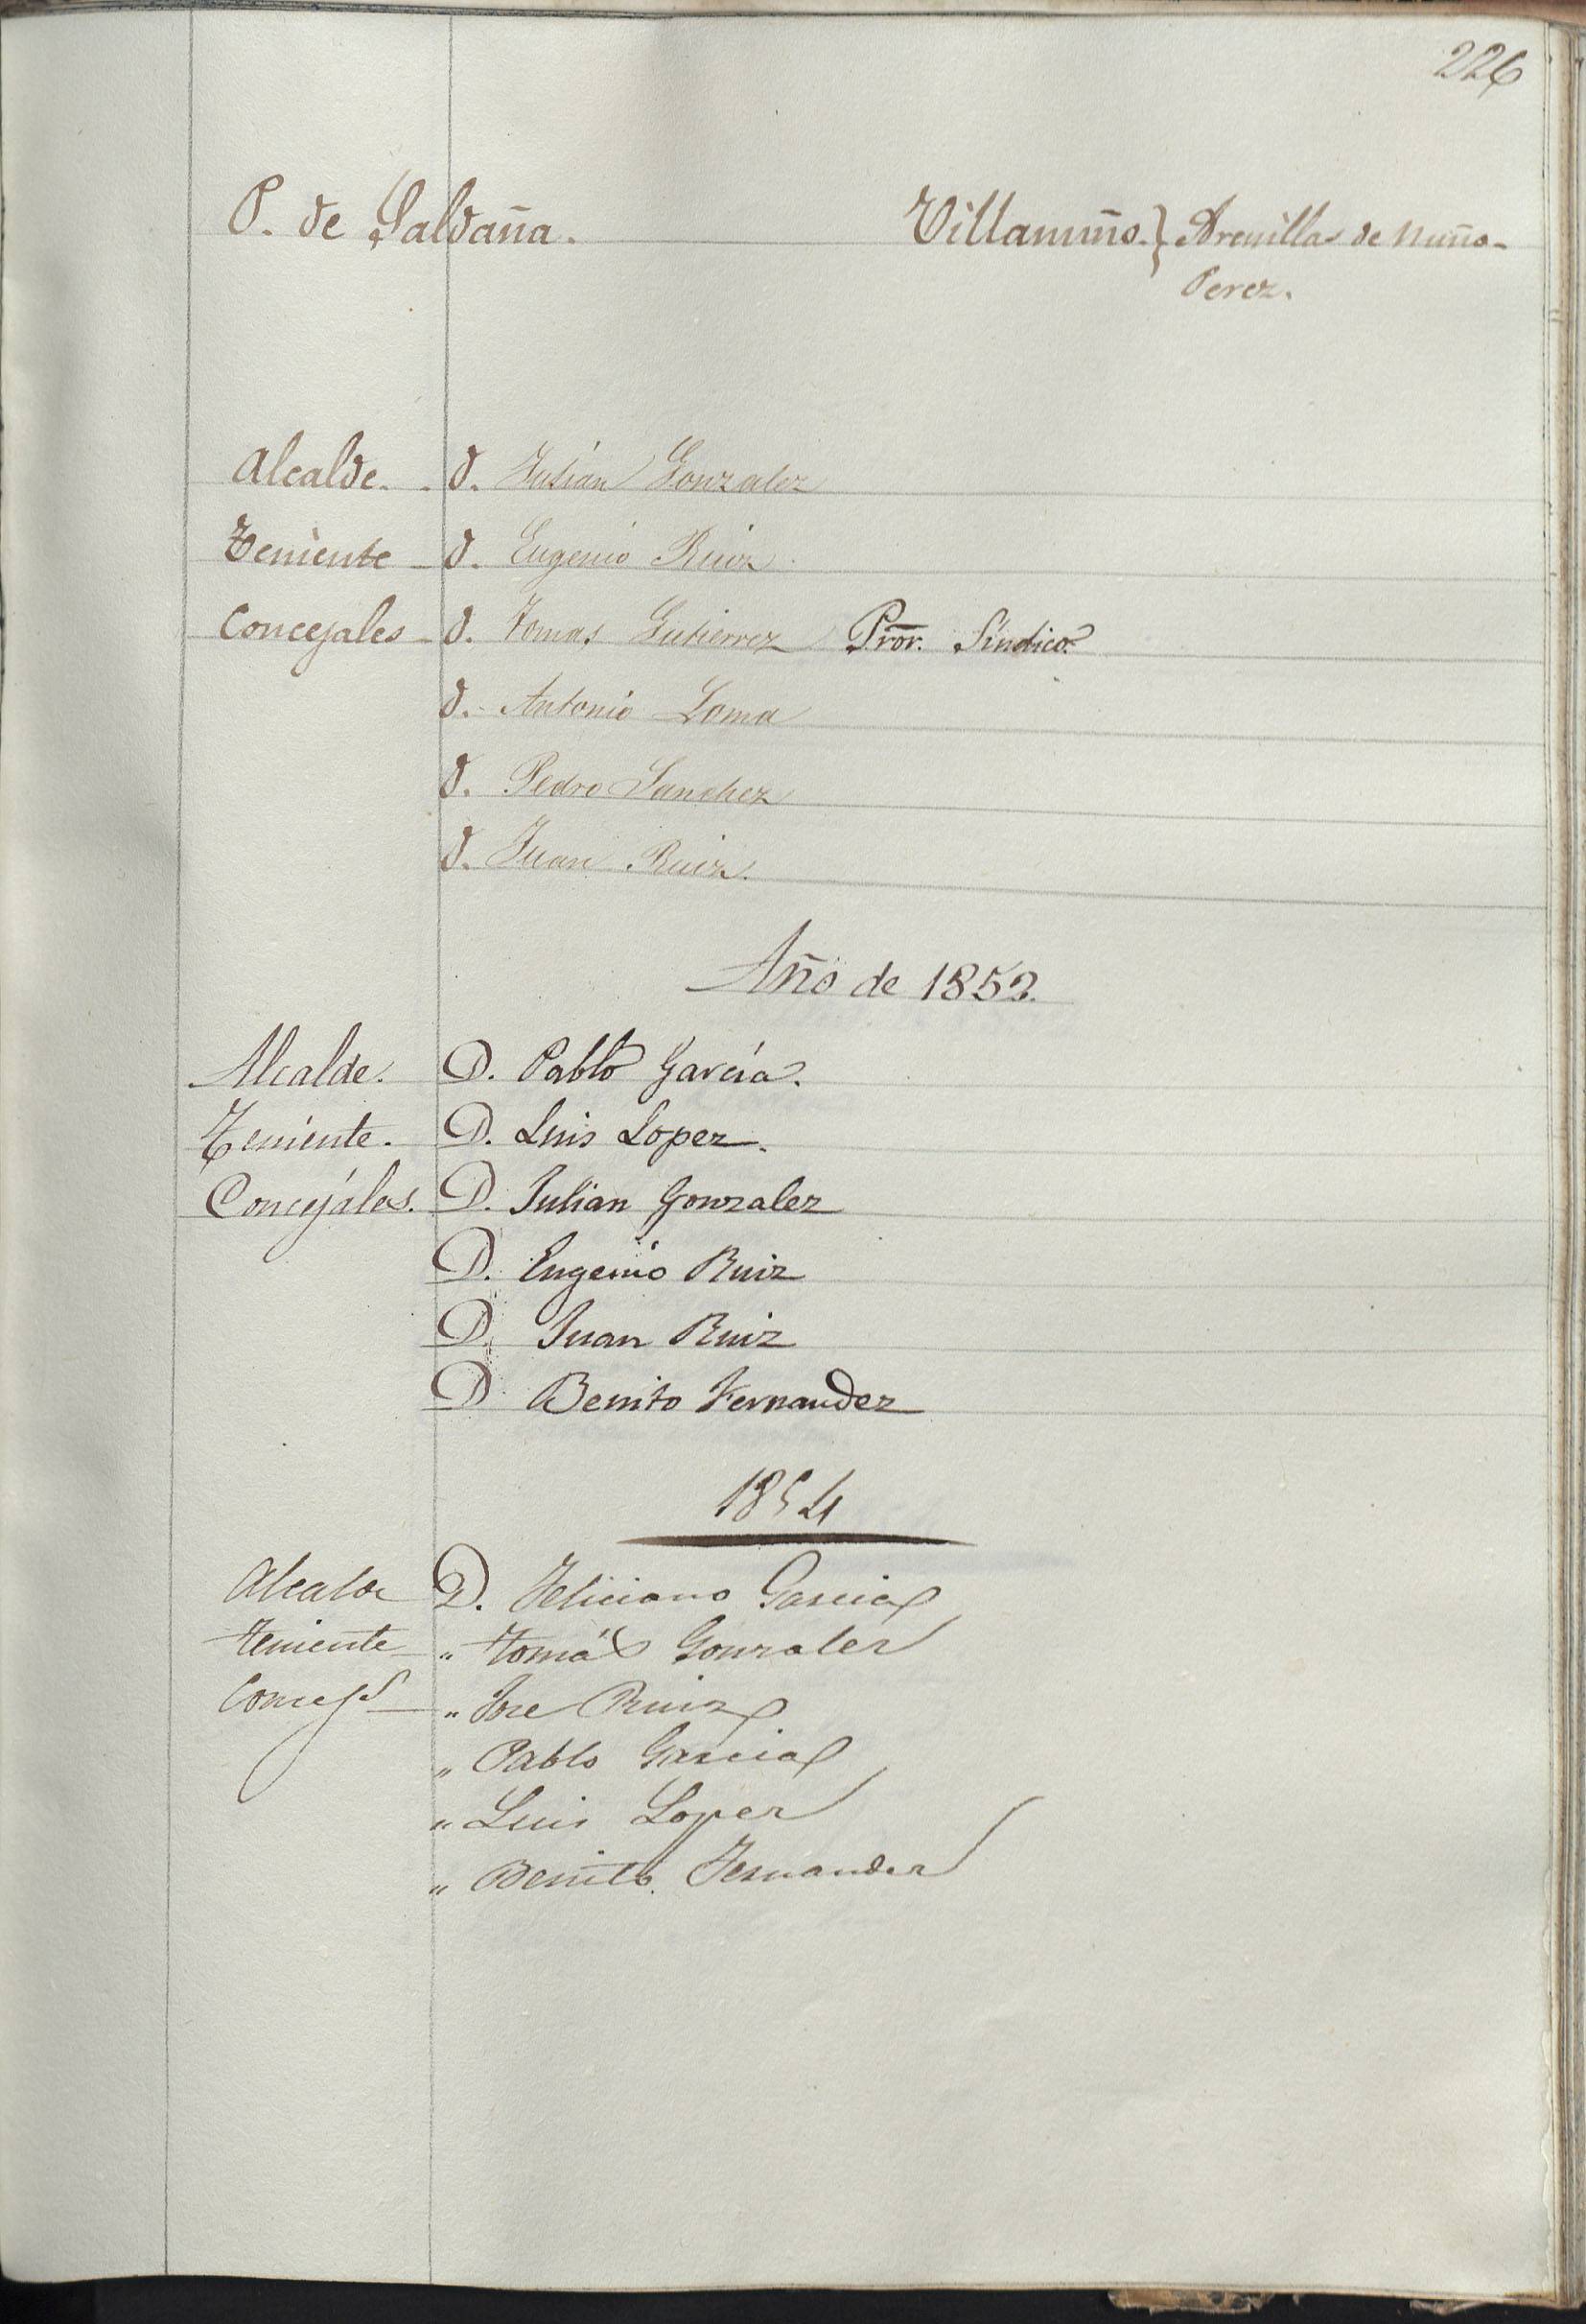 226
P. de Saldaña.
Villanuño.} Arenillas de Nuño-
Perez.
Alcalde. . D. Julian Gonzalez
Teniente - D. Eugenio Ruiz
Concejales - D. Tomas Gutierrez Pror. Síndico.
D. Antonio Loma
D. Pedro Sanchez
D. Juan Ruiz.
Año de 1852.
Alcalde. D. Pablo García.
Teniente. D. Luis Lopez.
Concejáles. D. Julian Gonzalez
D. Eugenio Ruiz
D. Juan Ruiz
D. Benito Fernandez
1854
Alcalde D. Feliciano Garcia
Teniente - " Tomás Gonzalez
Concejs - " Jose Ruiz
" Pablo Garcia
" Luis Lopez
" Benito Fernandez